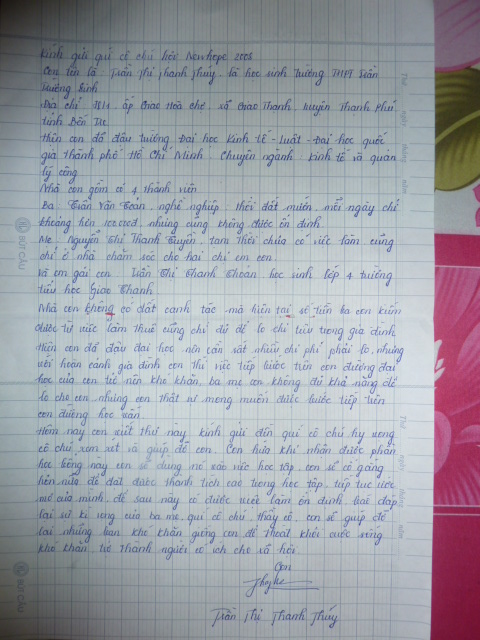 Kính gửi quí cô chú hội Newhope 2008
Con tên là: Trần Thị Thanh Thúy, là học sinh trường THPT Trần
Trường Sinh
Địa chỉ: ấp Giao Hoà chợ, xã Giao Thạnh, huyện Thạnh Phú
tỉnh Bến Tre
Hiện con đã đậu trường Đại học Kinh tế - Luật - Đại học quốc
gia thành phố Hồ Chí Minh. Chuyên ngành: Kinh tế và quản
lý công
Nhà con gồm có 4 thành viên
Ba: Trần Văn nghề nghiệp: thới đất mướn, mỗi ngày chỉ
khoảng hơn nhưng cũng không được ổn định
Mẹ: Nguyễn Thị Thanh Tuyền, tạm thời chưa có việc làm cũng
chỉ ở nhà chăm sóc cho hai chị em con
Và em gái con: Trần Thị Thanh Thoản, học sinh lớp 4 trường
tiểu học Giao Thạnh
Nhà con không có đất canh tác mà hiện tại số tiền ba con kiếm
được từ việc làm thuê cũng chỉ đủ để lo chi tiêu trong gia đình
Hiện con đã đậu đại học nên cần rất nhiều chi phí phải lo, nhưng
với hoàn cảnh gia đình con thì việc tiếp bước trên con đường đại
học của con trở nên khó khăn, ba mẹ con không đủ khả năng để
lo cho con nhưng con thật sự mong muốn được bước tiếp trên
con đường học vấn.
Hôm nay con viết thư này kính gửi đến quí cô chú hy vọng
cô chú xem xét và giúp đỡ con. Con hứa khi nhận được phần
học bổng này con sẽ dụng nó vào việc học tập, con sẽ cố gắng
hơn nữa để đạt được thành tích cao trong học tập, tiếp tục ước
mơ của mình, để sau này có được việc làm ổn định, đáp
lại sự kì vọng của ba mẹ, quí cô chú, thầy cô, con sẽ giúp đỡ
lại những bạn khó khăn giống con để thoát khỏi cuộc sống
khó khăn, trở thành người có ích cho xã hội.
Con
Trần Thị Thanh Thúy